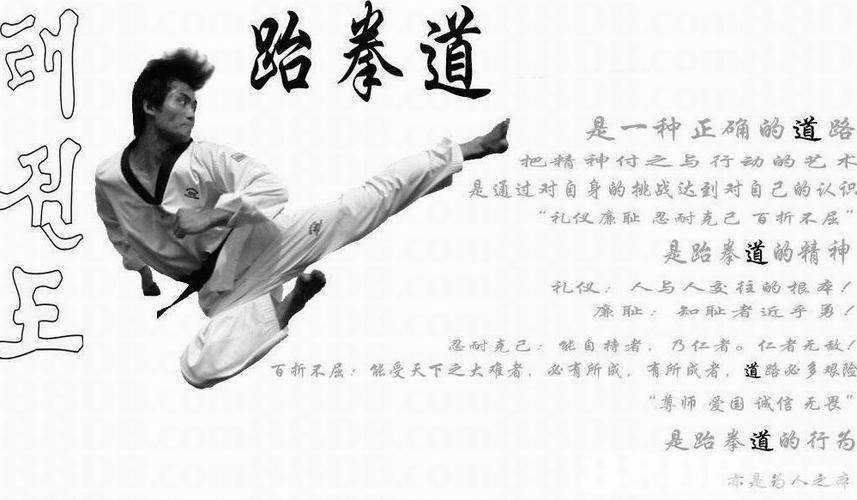 태권도
跆拳道
是一种正确的道路
把精神付之与行动的艺术
是通过对自身的挑战达到对自己的认识
“礼仪廉耻 忍耐克己 百折不屈”
是跆拳道的精神
礼仪：人与人交往的根本！
廉耻：知耻者近乎勇！
忍耐克己：能自持者，乃仁者。仁者无敌！
百折不屈：能受天下之大难者，必有所成，有所成者，道路必多艰险
“尊师 爱国 诚信 无畏”
是跆拳道的行为
亦是为人之本